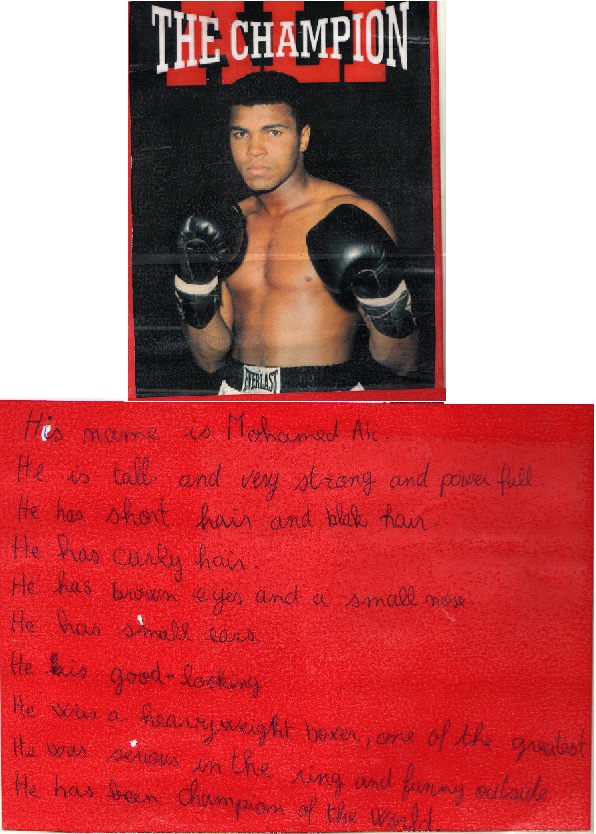 ALI
THE CHAMPION
EVERLAST
His name is Mohamed Ali.
He is tall and very strong and power full
He has short hair and blak hair.
He has curly hair.
He has brown eyes and a small nose.
He has small ears.
He is good-looking
He was a heavyweight boxer, one of the greatest
He was serious in the ring and funny outside
He has been champion of the world.